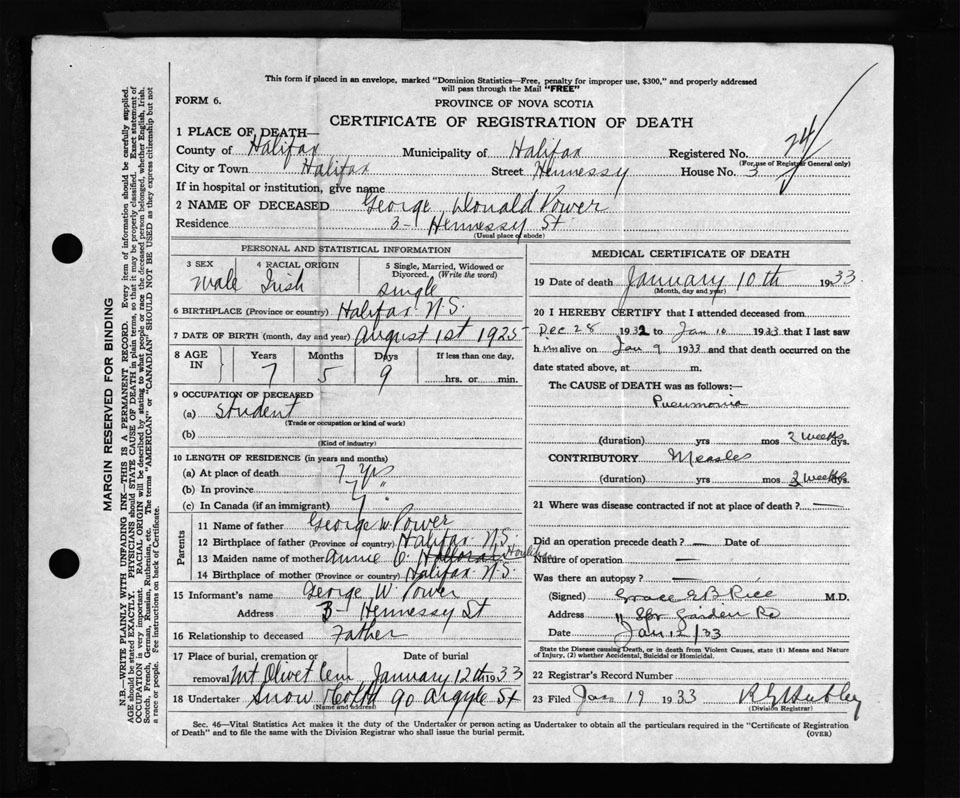 This form if placed in an envelope, marked "Dominion Statistics—Free, penalty for improper use, $300," and properly addressed
will pass through the Mail "FREE"
FORM 6.
PROVINCE OF NOVA SCOTIA
CERTIFICATE OF REGISTRATION OF DEATH
1 PLACE OF DEATH—
County of Halifax Municipality of Halifax Registered No. 24
(For use of Registrar General only)
City or Town Halifax Street Hennessy House No. 3
If in hospital or institution, give name
2 NAME OF DECEASED George Donald Power
Residence 3- Hennessy St
(Usual place of abode)
PERSONAL AND STATISTICAL INFORMATION
3 SEX 4 RACIAL ORIGIN 5 Single, Married, Widowed or
Divorced. (Write the word)
Male Irish Single
6 BIRTHPLACE (Province or country) Halifax N.S.
7 DATE OF BIRTH (month, day and year) August 1st 1925
8 AGE IN Years Months Days If less than one day,
7 5 9 hrs. or min.
9 OCCUPATION OF DECEASED
(a) Student
(Trade or occupation or kind of work)
(b)
(Kind of industry)
10 LENGTH OF RESIDENCE (in years and months)
(a) At place of death 7 yrs
(b) In province 7 "
(c) In Canada (if an immigrant)
Parents
11 Name of father George W. Power
12 Birthplace of father (Province or country) Halifax N.S.
13 Maiden name of mother Annie O'
14 Birthplace of mother (Province or country) Halifax N.S.
15 Informant's name George W. Power
Address 3- Hennessy St
16 Relationship to deceased Father
17 Place of burial, cremation or Date of burial
removal Mt Olivet Cem January 12th 1933
18 Undertaker Snow & Co Ltd 90 Argyle St
(Name and address)
MEDICAL CERTIFICATE OF DEATH
19 Date of death January 10th 1933
(Month, day and year)
20 I HEREBY CERTIFY that I attended deceased from
Dec 28 1932 to Jan 10 1933 that I last saw
him alive on Jan 9 1933 and that death occurred on the
date stated above, at m.
The CAUSE of DEATH was as follows:—
Pneumonia
(duration) yrs mos 2 weeks dys.
CONTRIBUTORY Measles
(duration) yrs mos 2 weeks dys.
21 Where was disease contracted if not at place of death? —
Did an operation precede death? — Date of
Nature of operation —
Was there an autopsy? —
(Signed) Grace E B Rice M.D.
Address Spr Garden Rd
Date Jan 12/33
State the Disease causing Death, or in death from Violent Causes, state (1) Means and Nature
of Injury, (2) whether Accidental, Suicidal or Homicidal.
22 Registrar's Record Number
23 Filed Jan 19 1933
(Division Registrar)
Sec. 46—Vital Statistics Act makes it the duty of the Undertaker or person acting as Undertaker to obtain all the particulars required in the "Certificate of Registration
of Death" and to file the same with the Division Registrar who shall issue the burial permit.
(OVER)
MARGIN RESERVED FOR BINDING
N.B.—WRITE PLAINLY WITH UNFADING INK—THIS IS A PERMANENT RECORD. Every item of information should be carefully supplied.
AGE should be stated EXACTLY. PHYSICIANS should STATE CAUSE OF DEATH in plain terms, so that it may be properly classified. Exact statement of
OCCUPATION is very important. RACIAL ORIGIN will be described by stating to what people or race the deceased person belonged, whether English, Irish,
Scotch, French, German, Russian, Ruthenian, etc. The terms "AMERICAN" or "CANADIAN" SHOULD NOT BE USED as they express citizenship but not
a race or people. Fee instructions on back of Certificate.